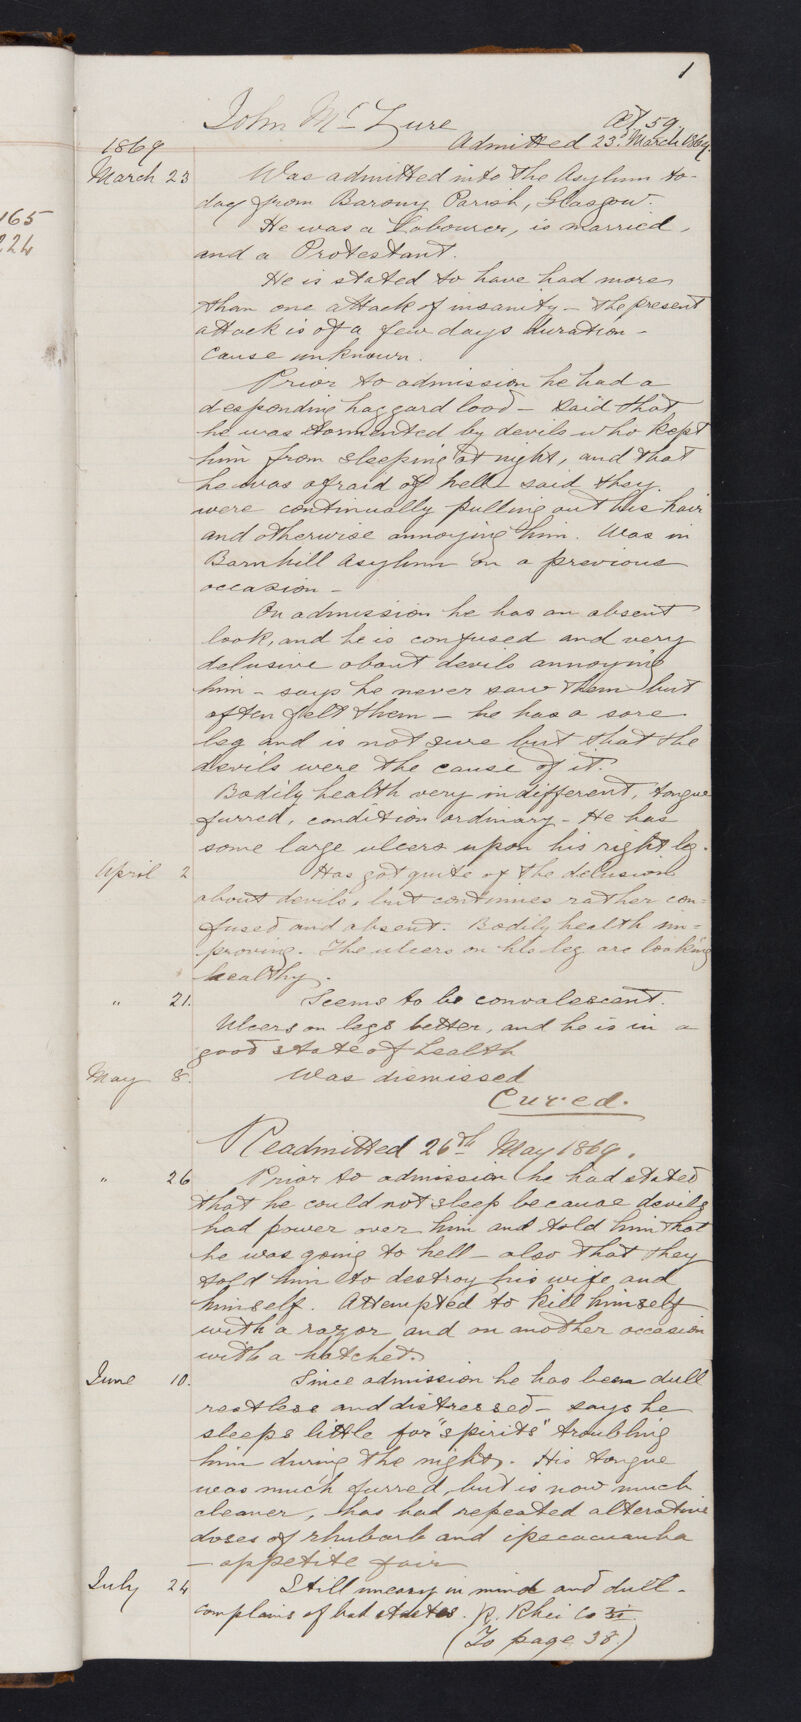 1
John Mc Lure
Æt 59.
1869
Admitted 23d March 1869.
March 23 Was admitted into the Asylum to-
day from Barony Parish, Glasgow.
165
He was a Labourer, is married,
224
and a Protestant.
He is stated to have had more
than one attack of insanity - the present
attack is of a few days duration -
cause unknown.
Prior to admission he had a
desponding haggard look - said that
he was tormented by devils who kept
him from sleeping at night, and that
he was afraid of hell - said they
were continually pulling out his hair
and otherwise annoying him. Was in
Barnhill Asylum on a previous
occasion -
On admission he has an absent
look, and he is confused and very
delusive about devils annoying
him - says he never saw them but
often felt them - he has a sore
leg and is not sure but that the
devils were the cause of it.
Bodily health very indifferent, tongue
furred, condition ordinary - He has
some large ulcers upon his right leg.
April 2 Has got quite of the delusion
about devils, but continues rather con=
fused and absent. Bodily health im=
proving. The ulcers on his leg are looking
healthy.
" 21. Seems to be convalescent.
Ulcers on legs better, and he is in a
good state of health
May 8. Was dismissed
Cured.
Readmitted 26th May 1869.
" 26 Prior to admission he had stated
that he could not sleep because devils
had power over him and told him that
he was going to hell - also that they
told him to destroy his wife and
himself. Attempted to kill himself
with a razor and on another occasion
with a hatchet.
June 10. Since admission he has been dull
restless and distressed - says he
sleeps little for "spirits" troubling
him during the night. His tongue
was much furred, but is now much
cleaner, has had repeated alterative
doses of rhubarb and ipecacuanha
- appetite fair
July 24 Still uneasy in mind and dull -
complains of bad . R. Rhei Co
(To page 38.)